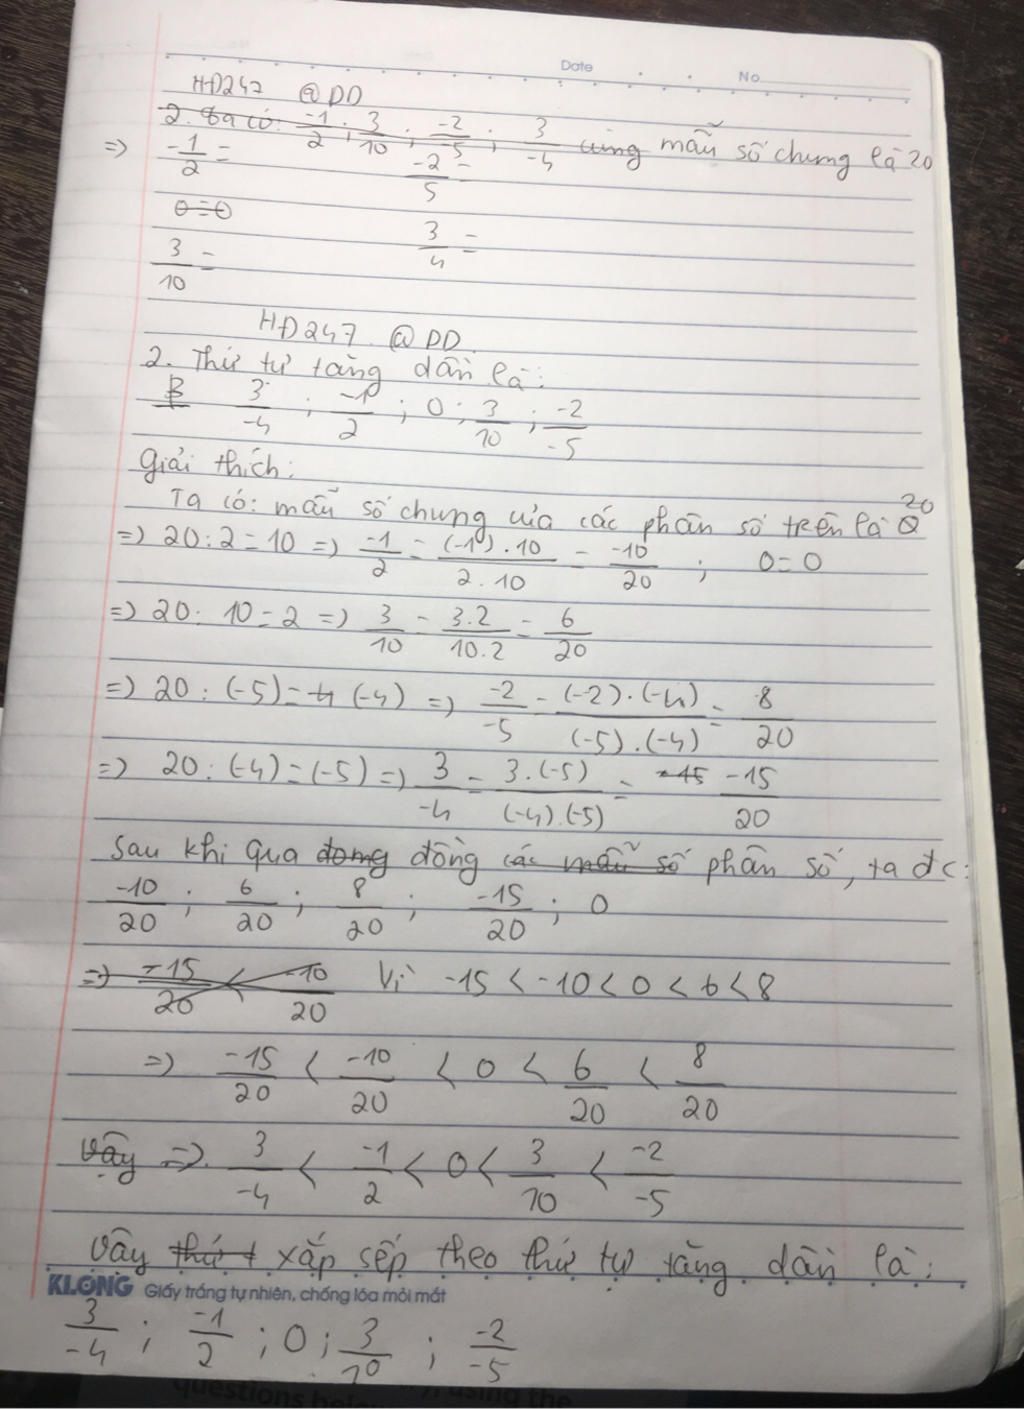 Date No
HĐ247 @DD
2. Ta có: -1/2 ; 3/10 ; -2/-5 ; 3/-4 cùng mẫu số chung là 20
=> -1/2 = -2/5 =
0=0
3/10 = 3/4 =
HĐ247 @DD
2. Thứ tự tăng dần là:
3/-4 ; -1/2 ; 0 ; 3/10 ; -2/-5
Giải thích:
Ta có: mẫu số chung của các phân số trên là 20
=> 20:2=10 => -1/2 = (-1).10/2.10 = -10/20 ; 0=0
=> 20:10=2 => 3/10 = 3.2/10.2 = 6/20
=> 20:(-5)=4 (-4) => -2/-5 = (-2).(-4)/(-5).(-4) = 8/20
=> 20:(-4)=(-5) => 3/-4 = 3.(-5)/(-4).(-5) = -15 -15/20
Sau khi qua dong đồng các mẫu số phân số, ta đc:
-10/20 ; 6/20 ; 8/20 ; -15/20 ; 0
=> -15/20 < -10/20 Vì -15 < -10 < 0 < 6 < 8
=> -15/20 < -10/20 < 0 < 6/20 < 8/20
Vậy => 3/-4 < -1/2 < 0 < 3/10 < -2/-5
Vậy thứ t xắp sếp theo thứ tự tăng dần là:
KLONG Giấy trắng tự nhiên, chống lóa mỏi mắt
3/-4 ; -1/2 ; 0 ; 3/10 ; -2/-5